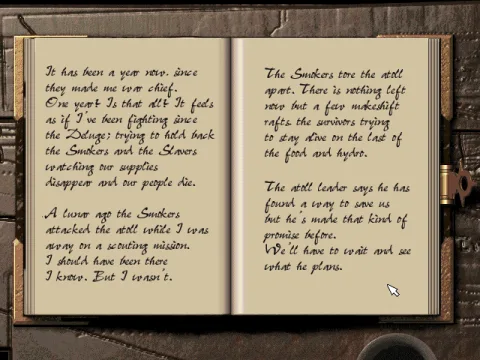 It has been a year now, since
they made me war chief.
One year? Is that all? It feels
as if I've been fighting since
the Deluge; trying to hold back
the Smokers and the Slavers
watching our supplies
disappear and our people die.
A lunar ago the Smokers
attacked the atoll while I was
away on a scouting mission.
I should have been there
I know. But I wasn't.
The Smokers tore the atoll
apart. There is nothing left
now but a few makeshift
rafts, the survivors trying
to stay alive on the last of
the food and hydro.
The atoll leader says he has
found a way to save us
but he's made that kind of
promise before.
We'll have to wait and see
what he plans.